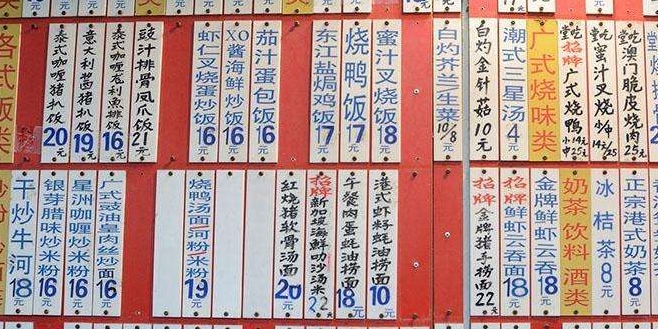 各式饭类
泰式咖喱猪扒饭20元
意大利酱猪扒饭19元
泰式咖喱龙利魚排饭16元
豉汁排骨凤爪饭21元
虾仁叉烧蛋炒饭16元
XO酱海鲜炒饭16元
茄汁蛋包饭16元
东江盐焗鸡饭17元
烧鸭饭17元
蜜汁叉烧饭18元
白灼芥兰/生菜10/8元
白灼金针菇10元
潮式三星汤4元
广式烧味类
堂吃招牌广式烧鸭
堂吃蜜汁叉烧
堂吃澳门脆皮烧肉25元
干炒牛河18元
银芽腊味炒米粉16元
星洲咖喱炒米粉16元
广式豉油皇肉丝炒面16元
烧鸭汤面/河粉/米粉19元
红烧猪软骨汤面20元
招牌新加坡海鲜叻沙汤米22元
午餐肉蛋蚝油捞面18元
港式虾籽蚝油捞面10元
招牌金牌猪手捞面22元
招牌鲜虾云吞面18元
金牌鲜虾云吞18元
奶茶饮料酒类
冰桔茶8元
正宗港式奶茶8元